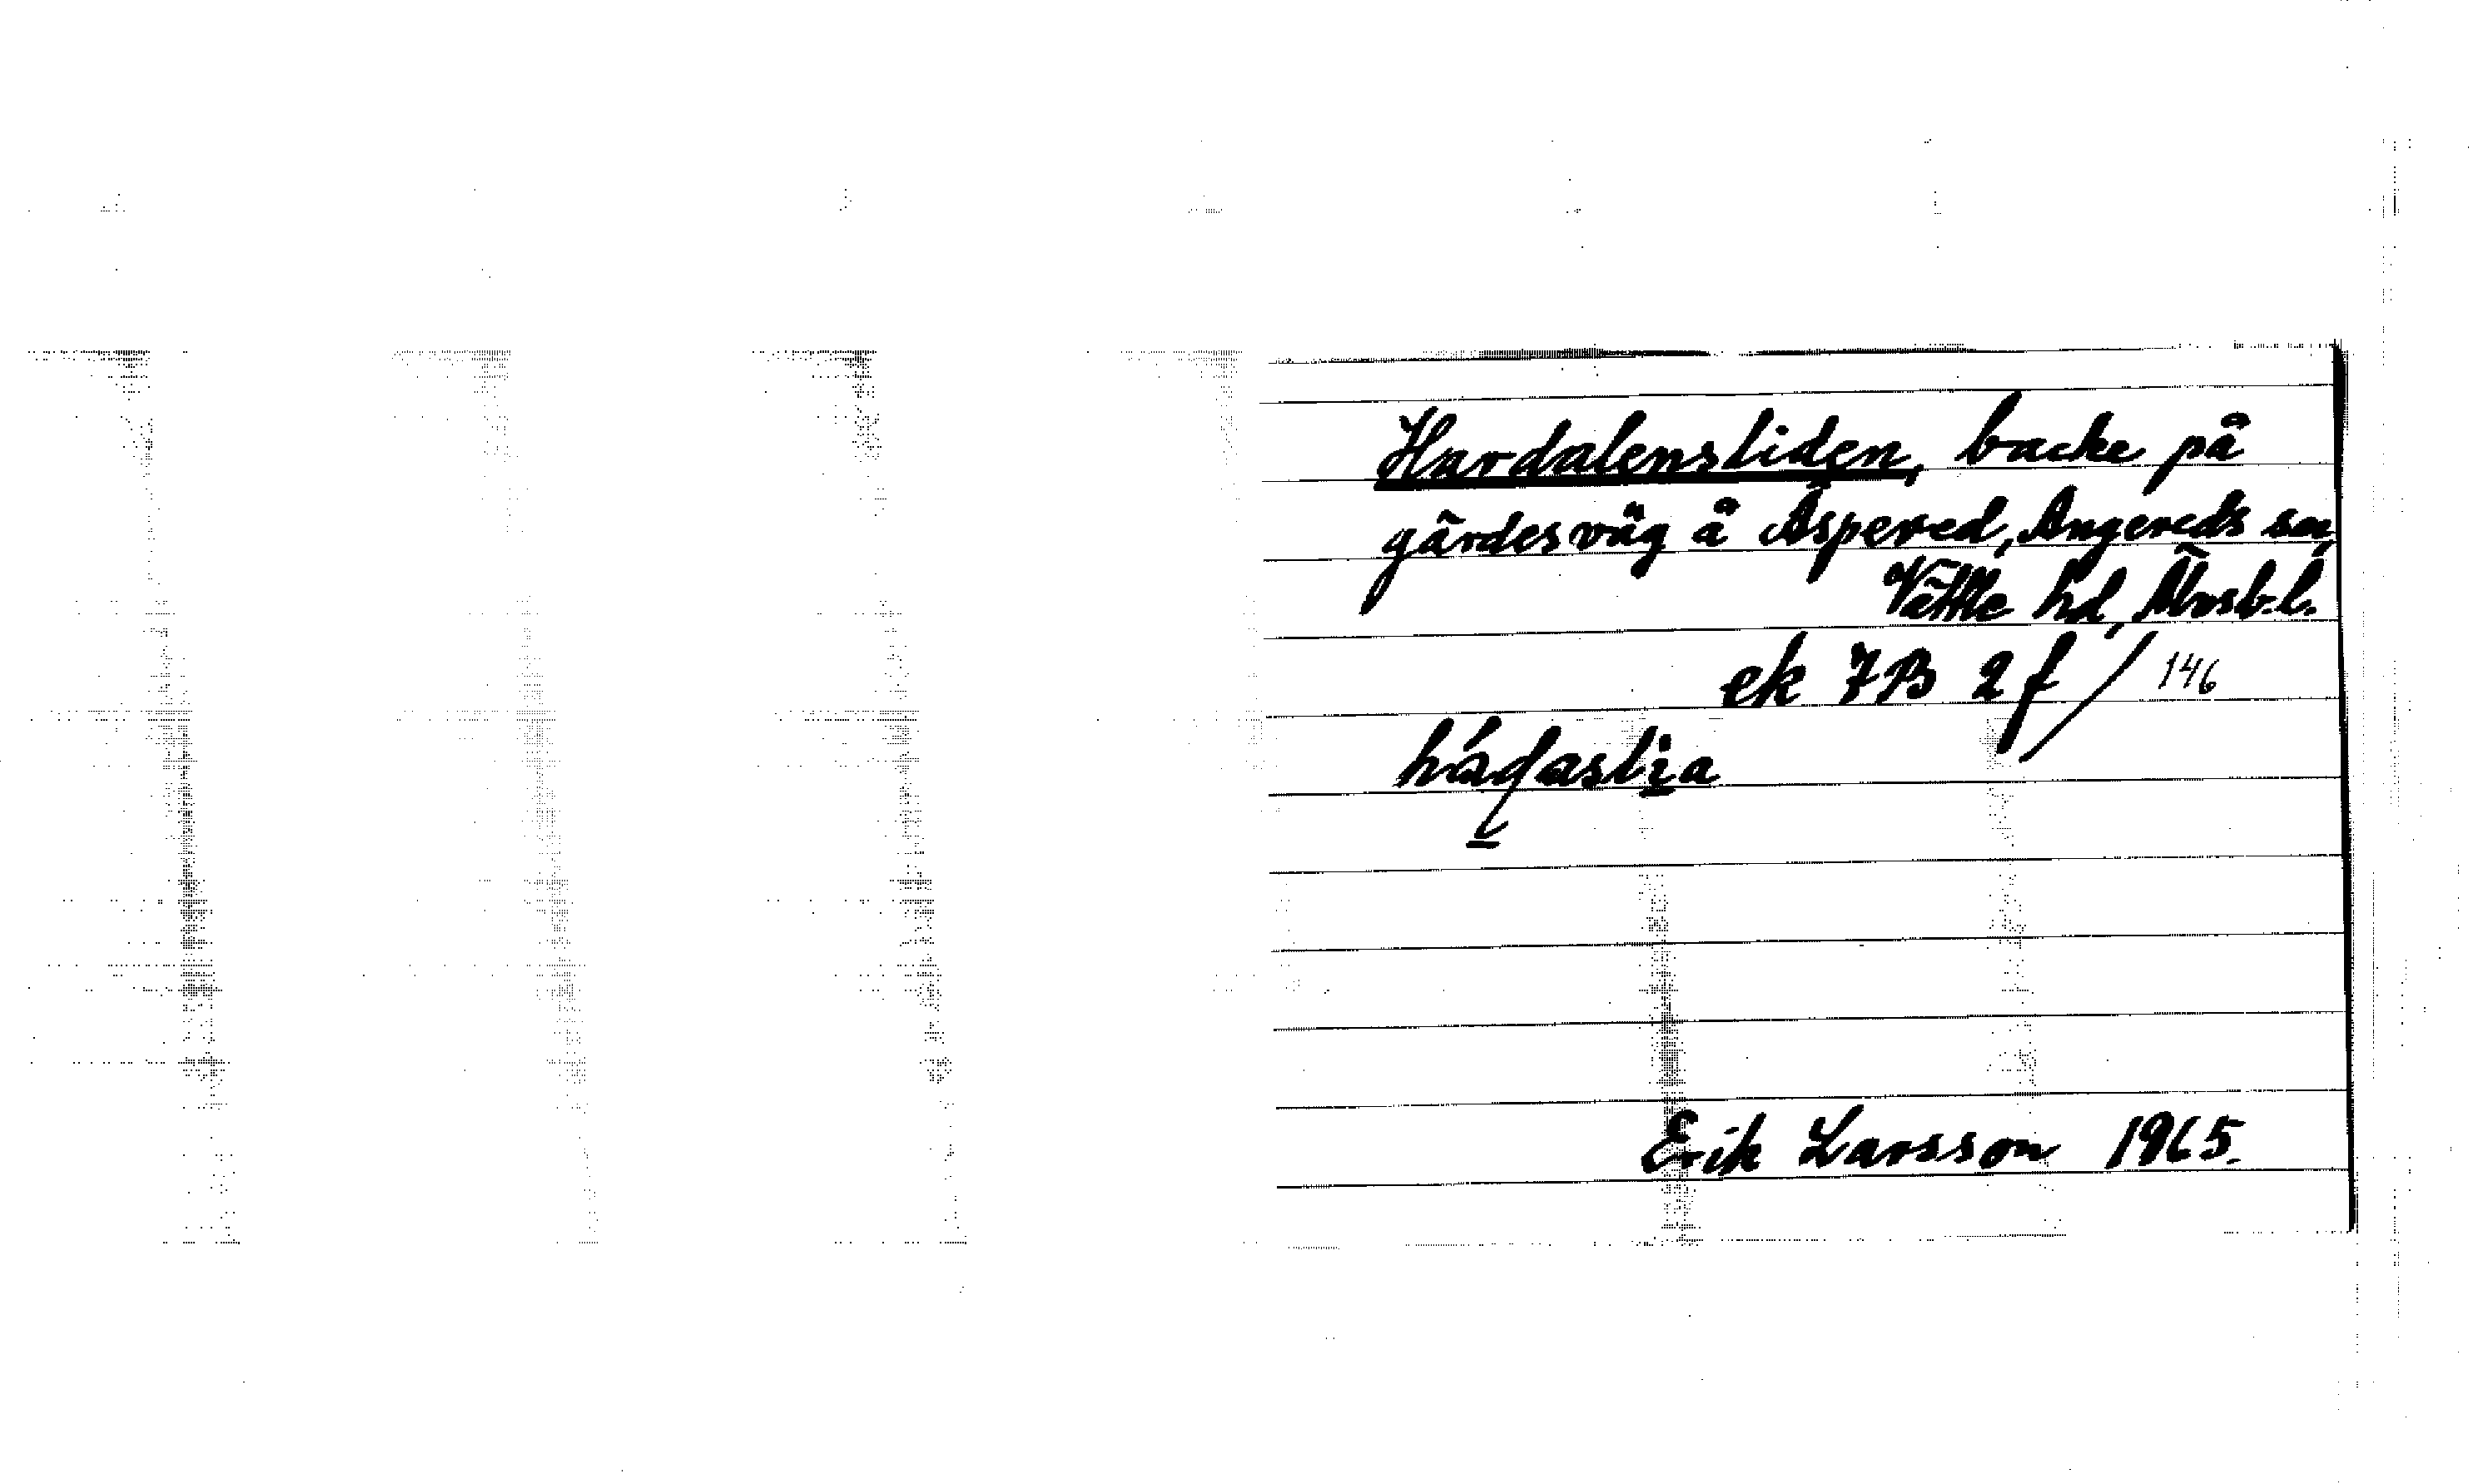 Hardalensliden, backe på
gärdesväg å Äspered, Angereds sn,
Vättle hd, Älvsb.l.
ek 7B 2 f / 146
Erik Larsson 1965.